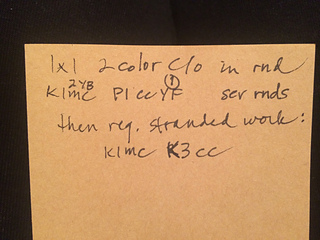 1x1 2 color c/o in rnd
K1mc 2 YB P1 cc YF ① sev rnds
then reg. stranded work:
K1mc K3cc